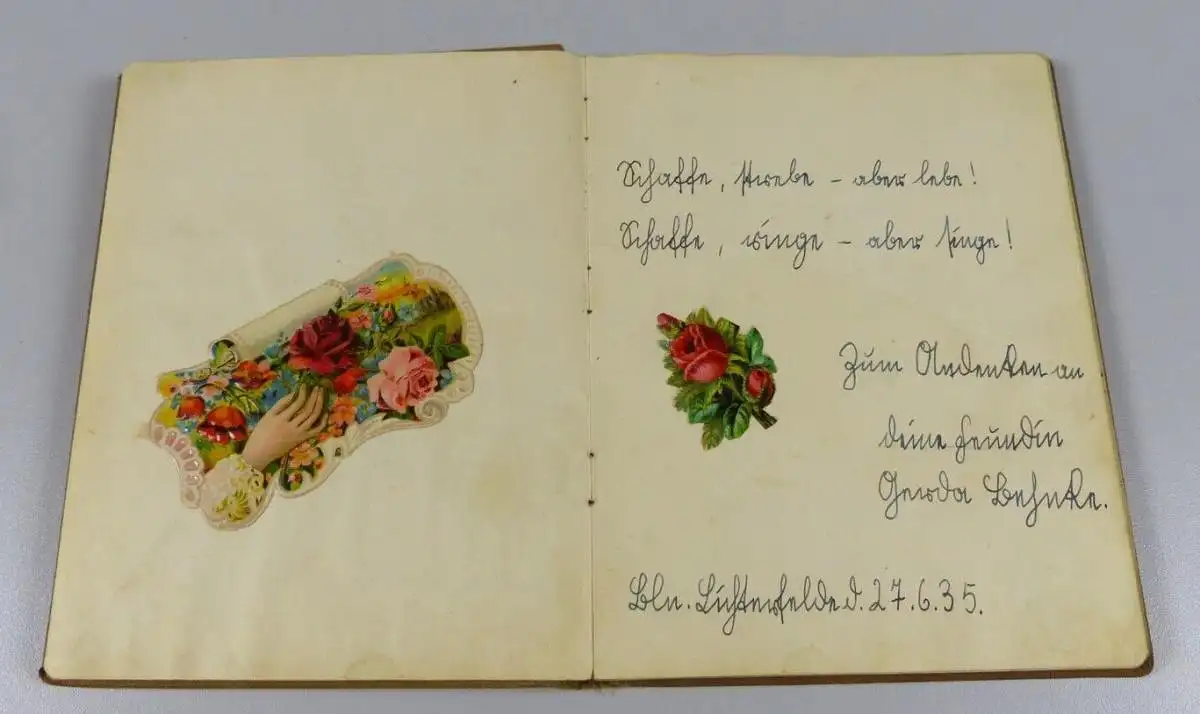 Schaffe, strebe – aber lebe!
Schaffe, ringe – aber singe!
Zum Andenken an
deine Feundin
Gerda Behnke.
Bln. Lichterfelde d. 27.6.35.